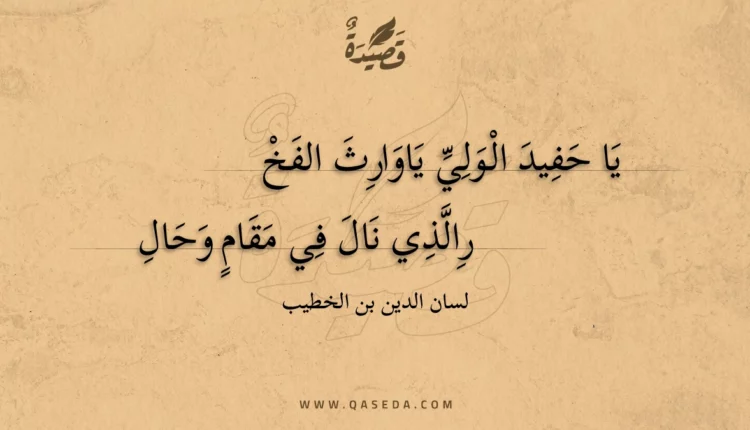 قَصِيْدَةٌ
يَا حَفِيدَ الْوَلِيِّ يَاوَارِثَ الفَخْ
رِالَّذِي نَالَ فِي مَقَامٍ وَحَالِ
لسان الدين بن الخطيب
WWW.QASEDA.COM